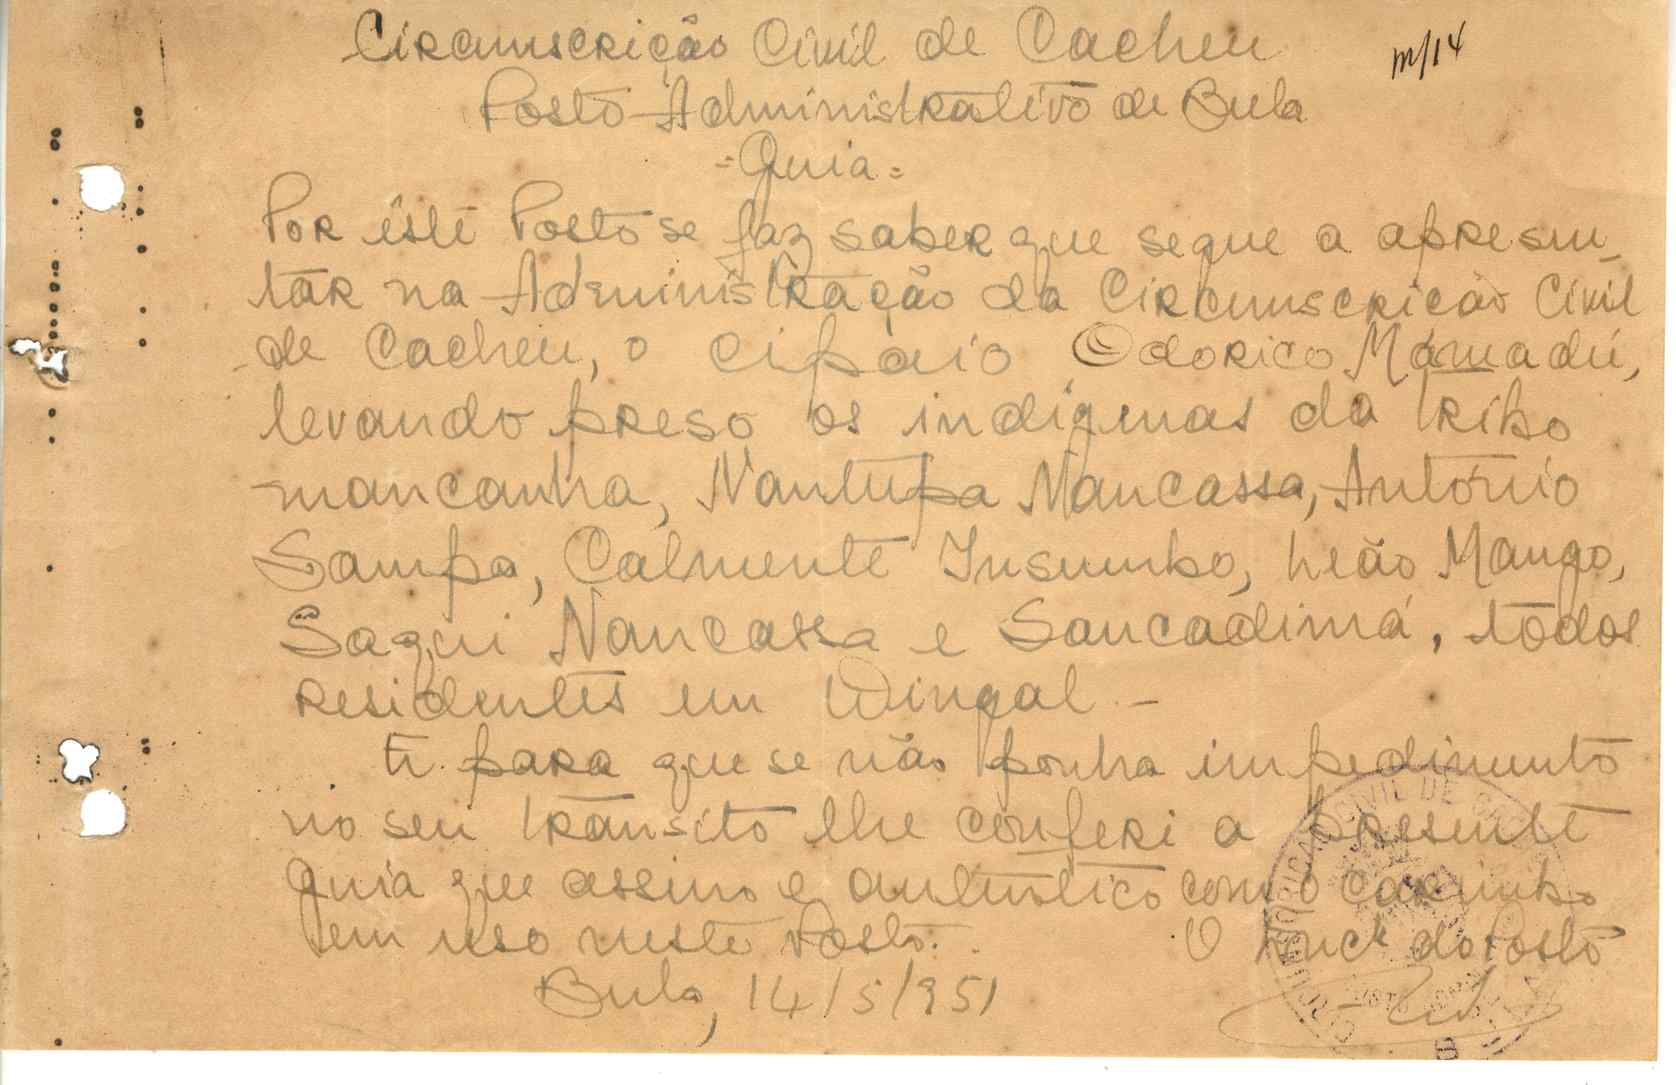 Circunscrição Civil de Cacheu
m/14
Posto Administrativo de Bula
= Guia =
Por êste Posto se faz saber que segue a apresen-
tar na Administração da Circunscrição Civil
de Cacheu, o cipaio Odorico Mamadú,
levando preso os indigenas da tribo
mancanha, Nantupa Nancassa, António
Sampa, Calmente Insumbo, Leão Mango,
Sagui Nancassa e Sancadimá, todos
residentes em Wingal. -
E para que se não ponha impedimento
no seu transito lhe conferi a presente
guia que assino e autentico com o carimbo
em uso neste Posto.
O Encº do Posto
Bula, 14/5/951
CIVIL DE